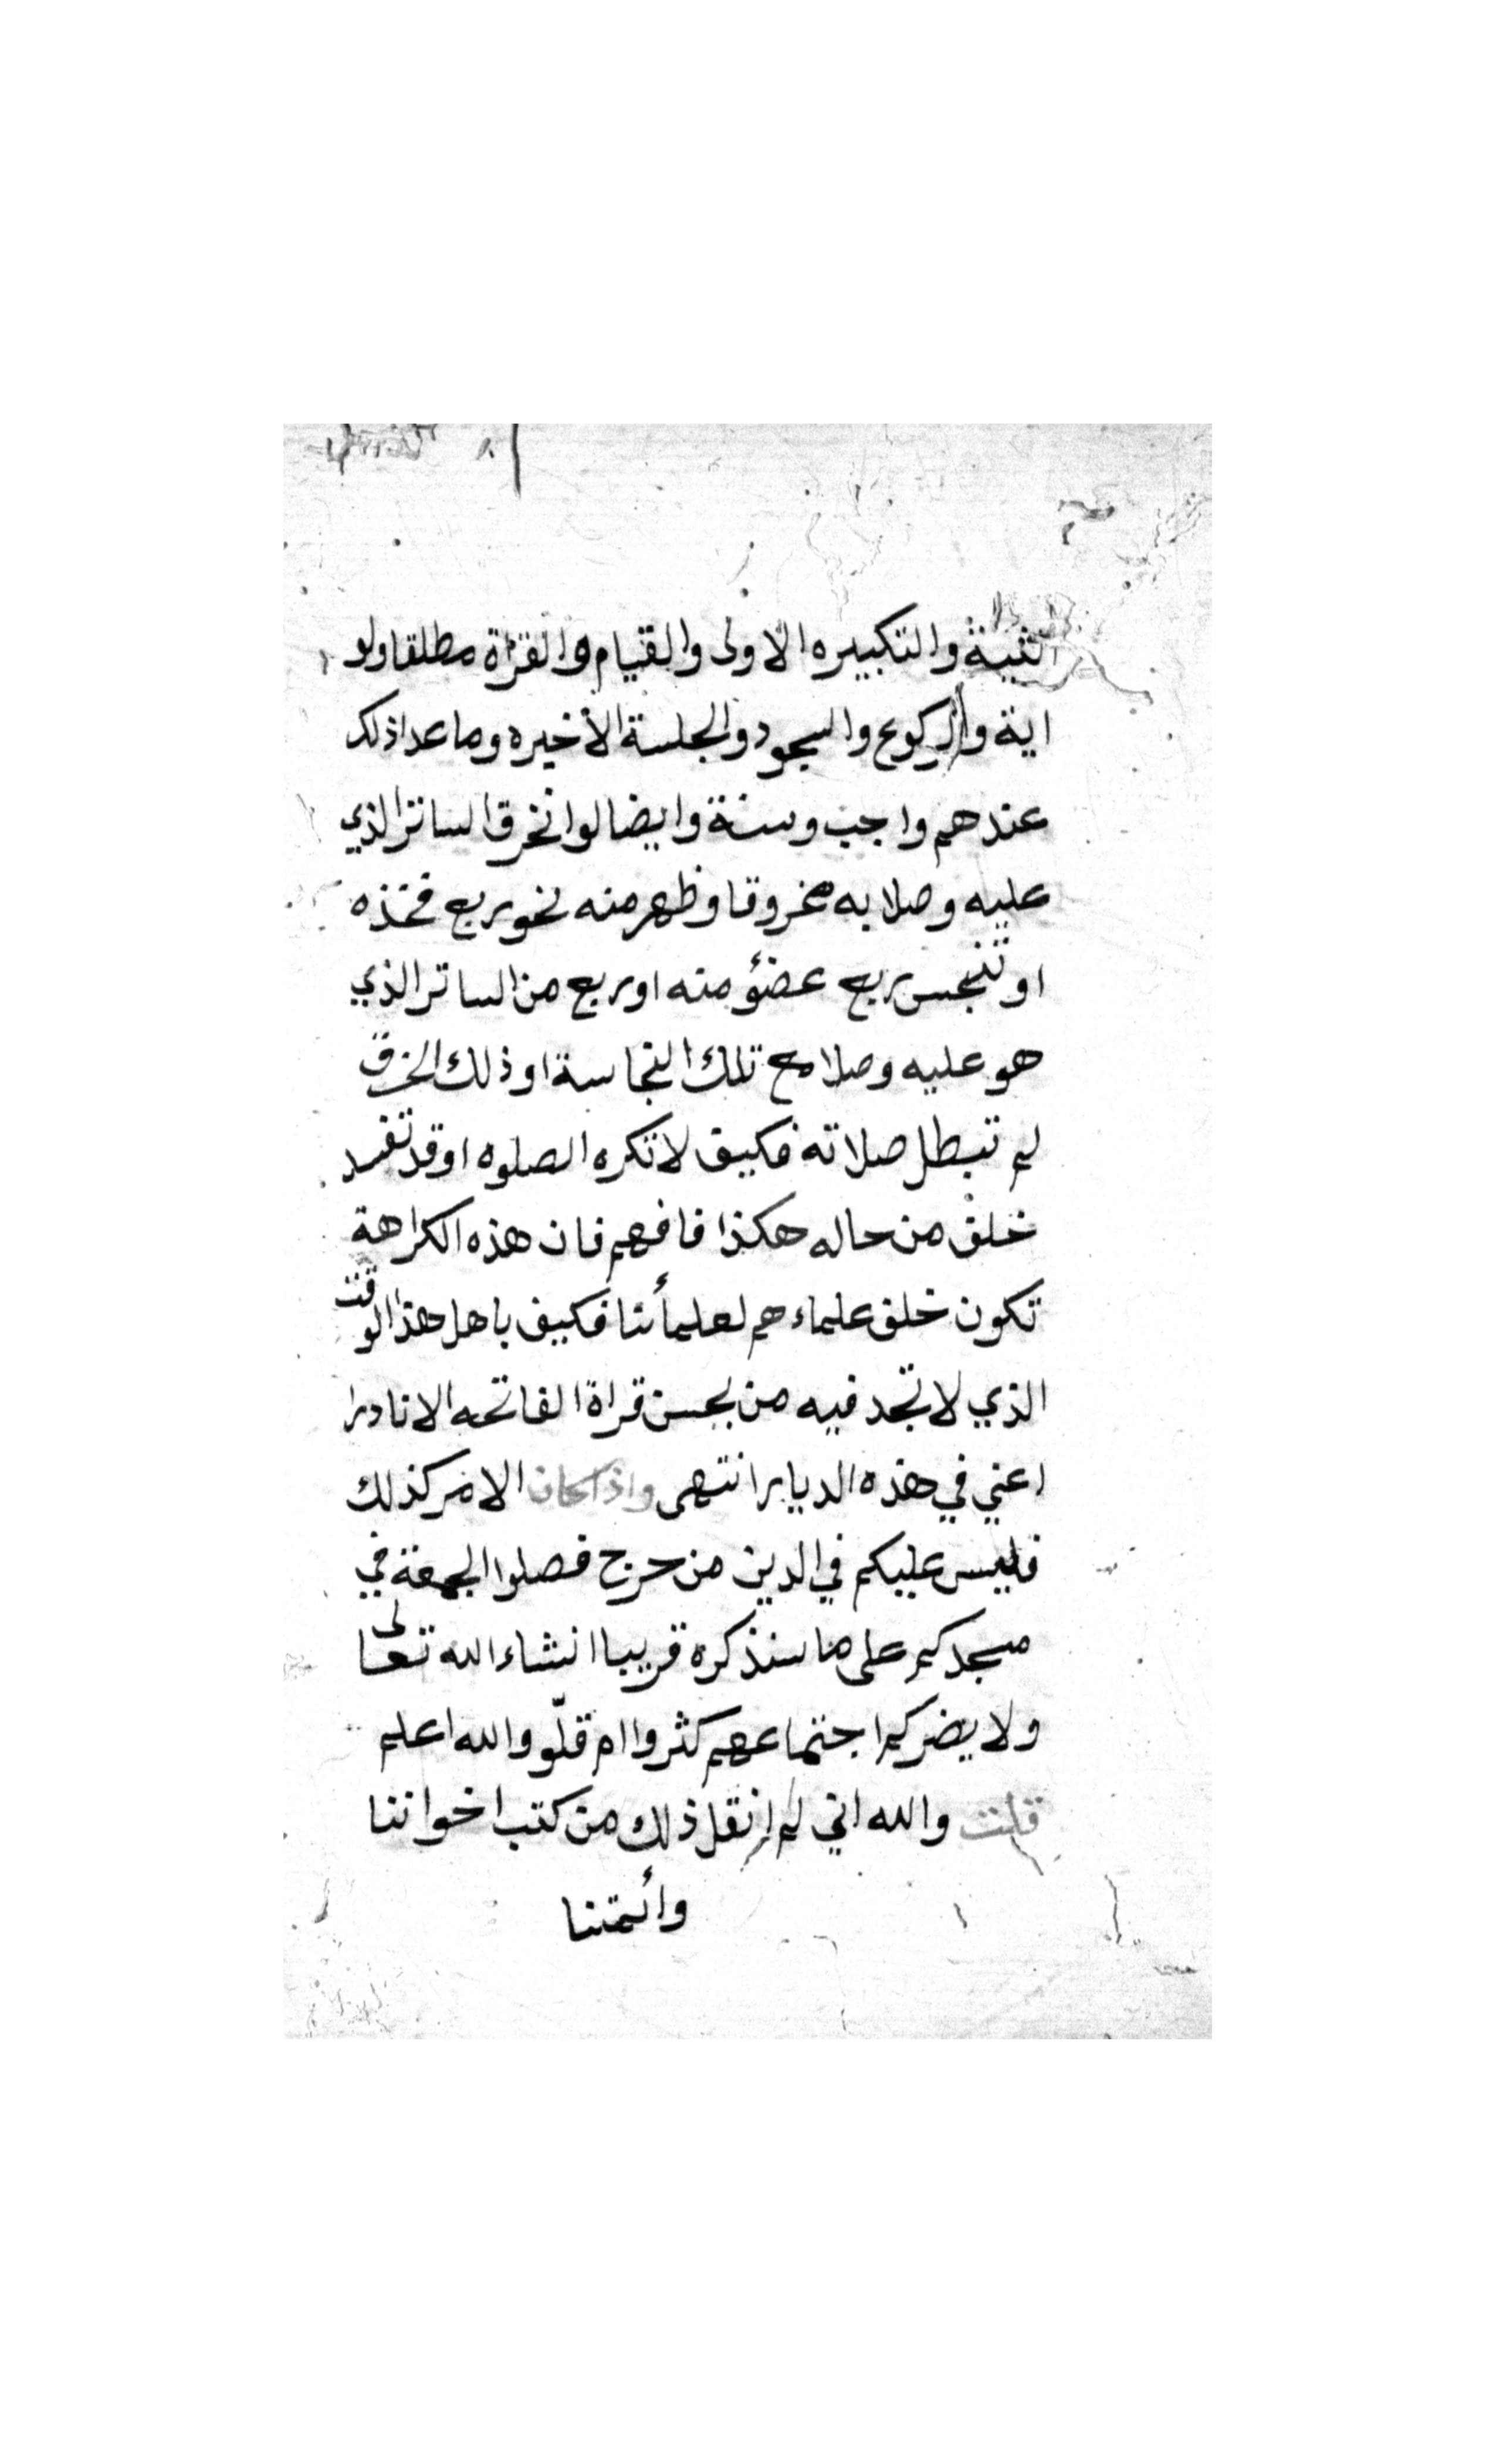 النية والتكبيره الاولى والقيام والقرأة مطلقا ولو
اية والركوع والسجود والجلسة الأخيره وما عدا ذلك
عندهم واجب وسنة وايضا لو انخرق الساتر الذي
عليه وصلا به مخروقا وظهر منه نحو ربع فخذه
او تنجس ربع عضؤ منه او ربع من الساتر الذي
هو عليه وصلا مع تلك النجاسة او ذلك الخرق
لم تبطل صلاته فكيف لا تكره الصلوه او قد تفسد
خلف من حاله هكذا فافهم فان هذه الكراهة
تكون خلف علماءهم لعلمأئنا فكيف باهل هذا الوقت
الذي لا تجد فيه من يحسن قراة الفاتحه الا نادرا
اعني في هذه الديار انتهى واذا كان الامر كذلك
فليس عليكم في الدين من حرج فصلوا الجمعة في
مسجدكم على ما سنذكره قريبا انشاء الله تعالى
ولا يضركم اجتماعهم كثروا ام قلّو والله اعلم
قلت والله اني لم انقل ذلك من كتب اخواننا
وأئمتنا